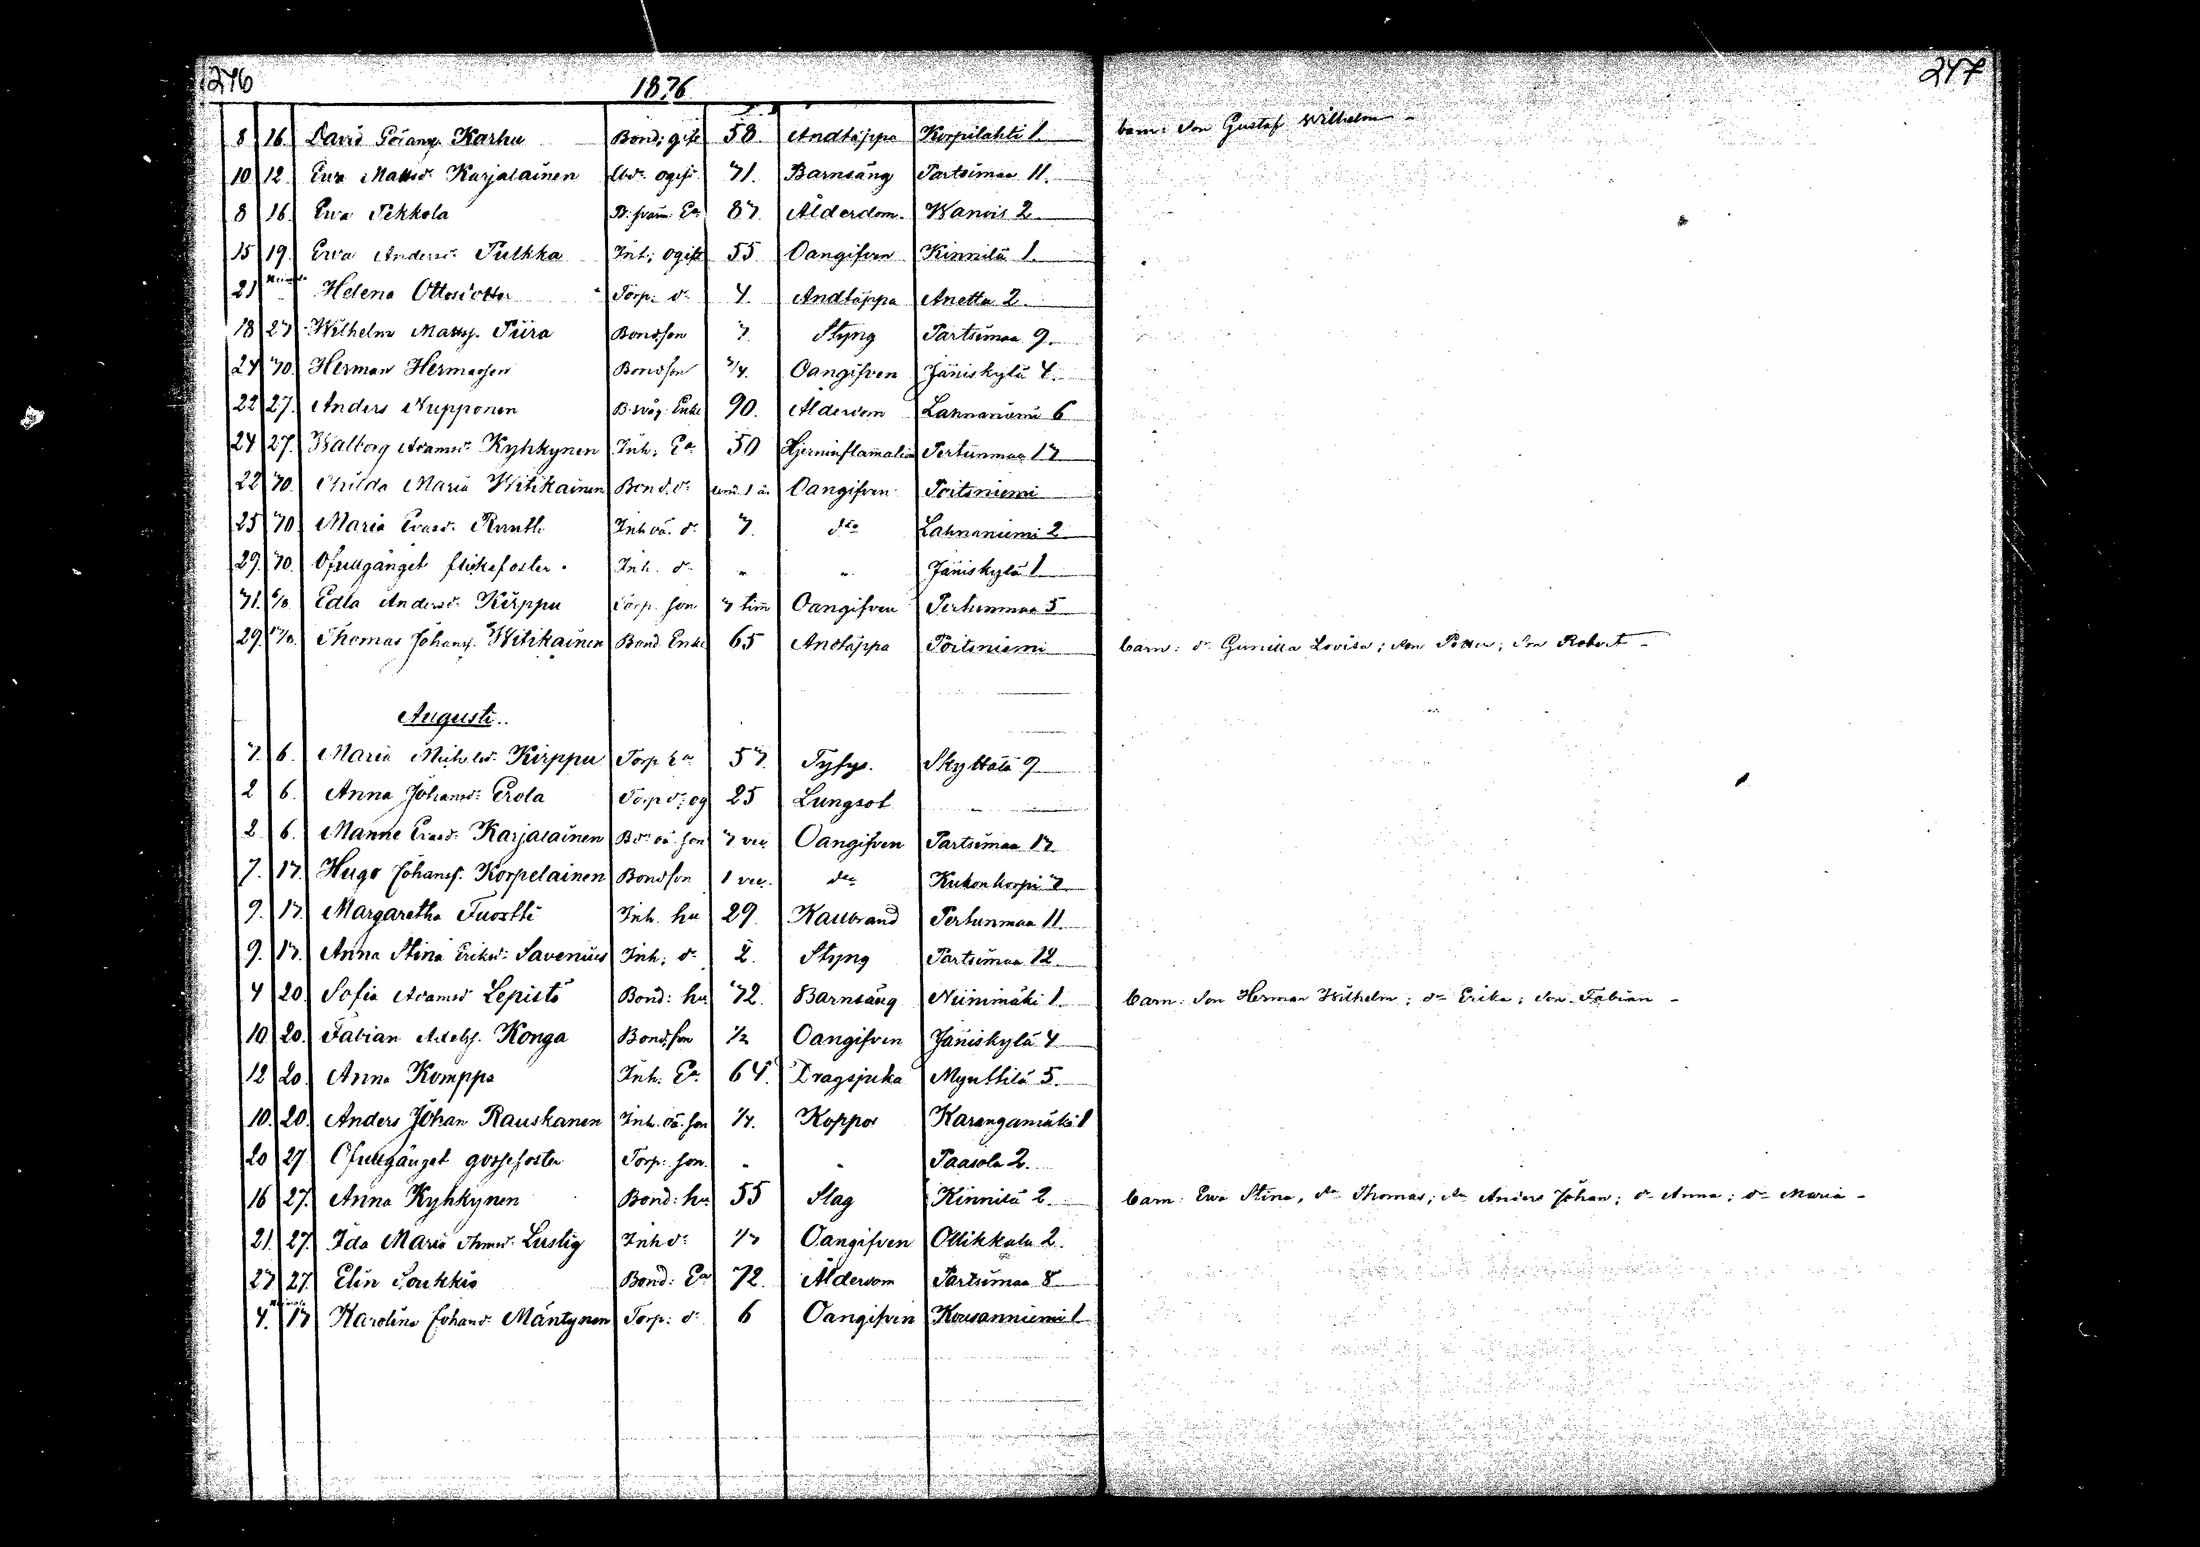 246
1876
247
8 16. David Görans. Karhu Bond; gift 58 Andtäppa Korpilahti 1. barn: Son Gustaf Wilhelm -
10 12. Ewa Mattsd: Karjalainen ogift 71. Barnsäng Partsimaa 11.
8 16. Ewa Pekkola Ea 87. Ålderdom. Warvis 2.
15 19. Ewa Andersd: Pulkka Inh; ogift 55 Oangifven Kinnilä 1.
21 Helena Ottosdotter Torp: d: 4. Andtäppa Anetta 2.
18 27 Wilhelm Matts. Piira Bondson 7. Styng Partsimaa 9.
24 30. Herman Hermansson Bondson 3/4. Oangifven Jäniskylä 4.
22 27. Anders Nupponen Enkl 90. Ålderdom Lahnaniemi 6
24 27. Walborg Adamsd: Kyhkynen Inh; Ea 50 Hjerninflamation Pertunmaa 17
22 30. Maria Witikainen Bond. d: Oangifven Poitsniemi
25 30 Maria Erasd: Inh oä. d: 7. dto Lahnaniemi 2
29. 30. Ofullgånget flickefoster. Inh. d: " " Jäniskylä 1
31. 6/8. Edla Andersd: Kirppu Torp. son 7 tim Oangifven Pertunmaa 5
29. Thomas Johans. Witikainen Bond Enkl 65 Andtäppa Poitsniemi barn: dr Gunilla Lovisa; son Petter; Son Robert -
Augusti.
7. 6. Maria Michelsd: Kirppu Torp Ea 57. Tyfus. Skyttälä 9
2 6. Anna Johansd: Erola Torp d: og 25 Lungsot
2 6. Manne Erasd: Karjalainen Bd: oä. son 7 vec Oangifven Partsimaa 17.
7. 17. Hugo Johans. Korpelainen Bondson 1 vec. dto Kukonkorpi 7
9. 17. Margaretha Tuortti Inh. hu 29. Kallbrand Pertunmaa 11.
9. 17. Anna Stina Eriksd: Savenius Inh; d: 2. Styng Partsimaa 12
4 20. Sofia Adamsd Lepistö Bond: hu 32. Barnsäng Niinimäki 1. barn: Son Herman Wilhelm; dr Erika; son Fabian -
10 20. Fabian Konga Bondson 1/2 Oangifven Jäniskylä 4
12 20. Anna Komppa Inh. Ea. 64. Dragsjuka Mynttilä 5.
10. 20. Anders Johan Rauskanen Inh. oä. son 1/4. Koppor Karangamäki 1
20 27 Ofullgånget gossefoster Torp: son. " " Paasola 2.
16 27. Anna Kyhkynen Bond: hu 55 Slag Kinnilä 2. barn: Ewa Stina, Thomas; Anders Johan; dr Anna; dr Maria -
21. 27. Ida Maria Lustig Inh d: Oangifven Ollikkala 2.
27 27. Elin Soukkio Bond: Ea 72. Ålderdom Partsimaa 8
4. 17 Karolina Johansd: Mäntynen Torp: d: 6 Oangifven Kousanniemi 1